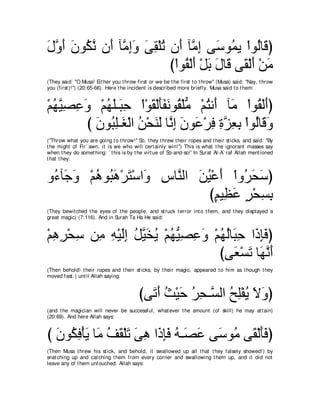 قَالُواْ يمُوسَى إِمَّآ أَن تُلْقِىَ وَإِمَّآ أَن نَّكُونَ أَوَّلَ
مَنْ أَلْقَى قَالَ بَلْ أَلْقُواْ)
(They said: "O Musa! Either you throw first or we be the first to throw'' (Musa) said: "Nay, throw you (first)!'') (20:65-66). Here the incident is described more briefly. Musa said to them:
(أَلْقُواْ مَآ أَنتُمْ مُّلْقُونَفَأَلْقَوْاْ حِبَـلَهُمْ وَعِصِيَّهُمْ
وَقَالُواْ بِعِزَّةِ فِرْعَونَ إِنَّا لَنَحْنُ الْغَـلِبُونَ )
("Throw what you are going to throw!'' So, they threw their ropes and their sticks, and said: "By the might of Fir`awn, it is we who will certainly win!'') This is what the ignorant masses say when they do something: `this is by the virtue of So-and-so!' In Surat Al-A`raf Allah mentioned that they:
(سَحَرُواْ أَعْيُنَ النَّاسِ وَاسْتَرْهَبُوهُمْ وَجَآءُو
بِسِحْرٍ عَظِيمٍ)
(They bewitched the eyes of the people, and struck terror into them, and they displayed a great magic) (7:116). And in Surah Ta Ha He said:
(فَإِذَا حِبَالُهُمْ وَعِصِيُّهُمْ يُخَيَّلُ إِلَيْهِ مِن سِحْرِهِمْ
أَنَّهَا تَسْعَى)
(Then behold! their ropes and their sticks, by their magic, appeared to him as though they moved fast.) until Allah saying:
(وَلاَ يُفْلِحُ السَّـحِرُ حَيْثُ أَتَى)
(and the magician will never be successful, whatever the amount (of skill) he may attain) (20:69). And here Allah says:
فَأَلْقَى مُوسَى عَصَـهُ فَإِذَا هِىَ تَلْقَفُ مَا يَأْفِكُونَ )
(Then Musa threw his stick, and behold, it swallowed up all that they falsely showed!) by snatching up and catching them from every corner and swallowing them up, and it did not leave any of them untouched. Allah says: